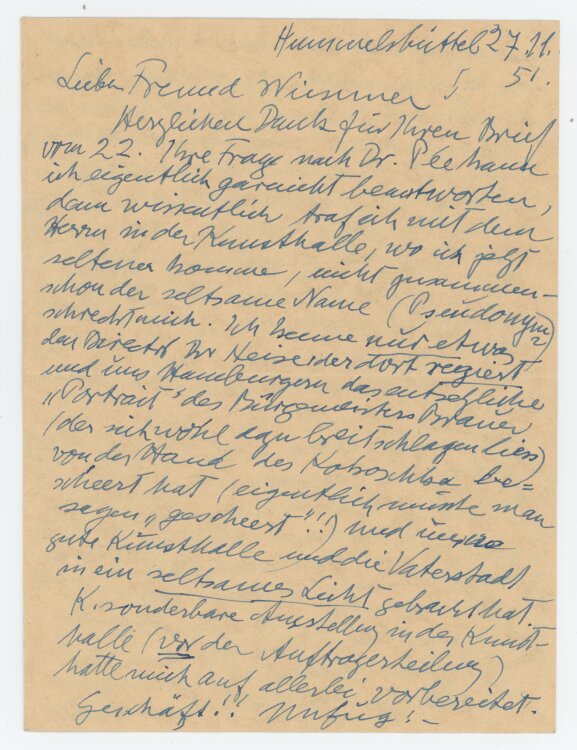 Hummelsbüttel 27.11.
51.
Lieber Freund Wimmer!
Herzlichen Dank für Ihren Brief
vom 22. Ihre Frage nach Dr. Pée kann
ich eigentlich garnicht beantworten,
denn wissentlich traf ich mit dem
Herrn in der Kunsthalle, wo ich jetzt
seltener komme, nicht zusammen –
schon der seltsame Name (Pseudonym?)
schreckt mich. Ich kenne nur etwas
den Direktor Dr Heise der dort regiert
und uns Hamburgern das entsetzliche
„Portrait" des Bürgermeisters Brauer
(der sich wohl dazu breitschlagen liess)
von der Hand des Kokoschka be=
scheert hat (eigentlich müsste man
sagen „gescheert"!!) und unsre
gute Kunsthalle und die Vaterstadt
in ein seltsames Licht gebracht hat.
K. sonderbare Ausstellung in der Kunst-
halle (vor der Auftragerteilung)
hatte mich auf allerlei vorbereitet.
Geschäft!! Unfug! –